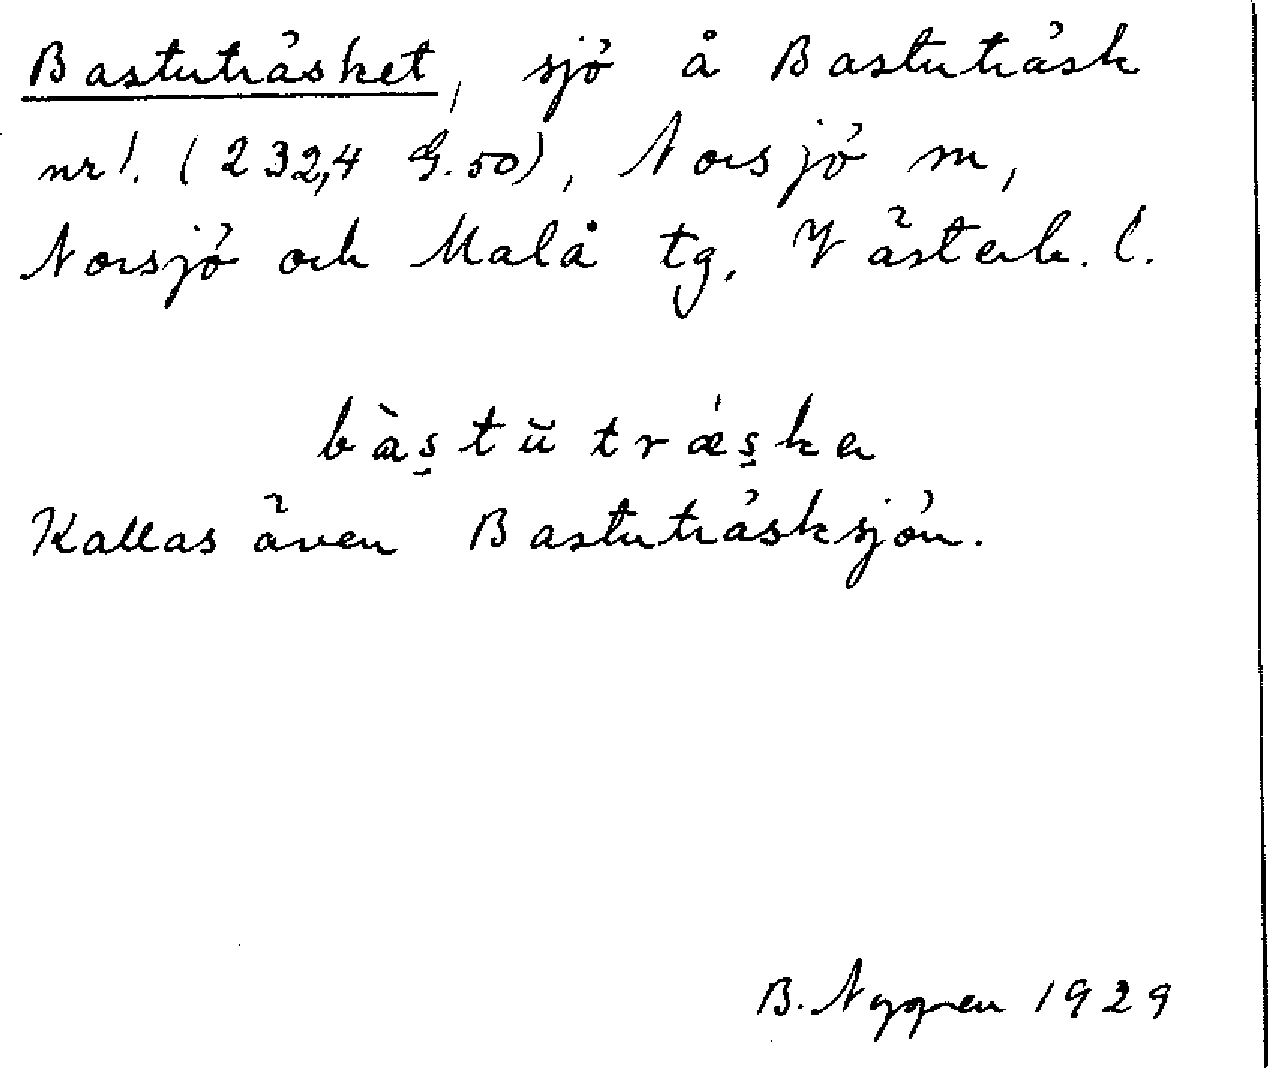 Bastuträsket, sjö å Bastuträsk
nr 1. (232,4 G.50), Norsjö m,
Norsjö och Malå tg. Västerb. l.
bàs̱tŭtrǽs̱ka
Kallas även Bastuträsksjön.
B. Nygren 1929